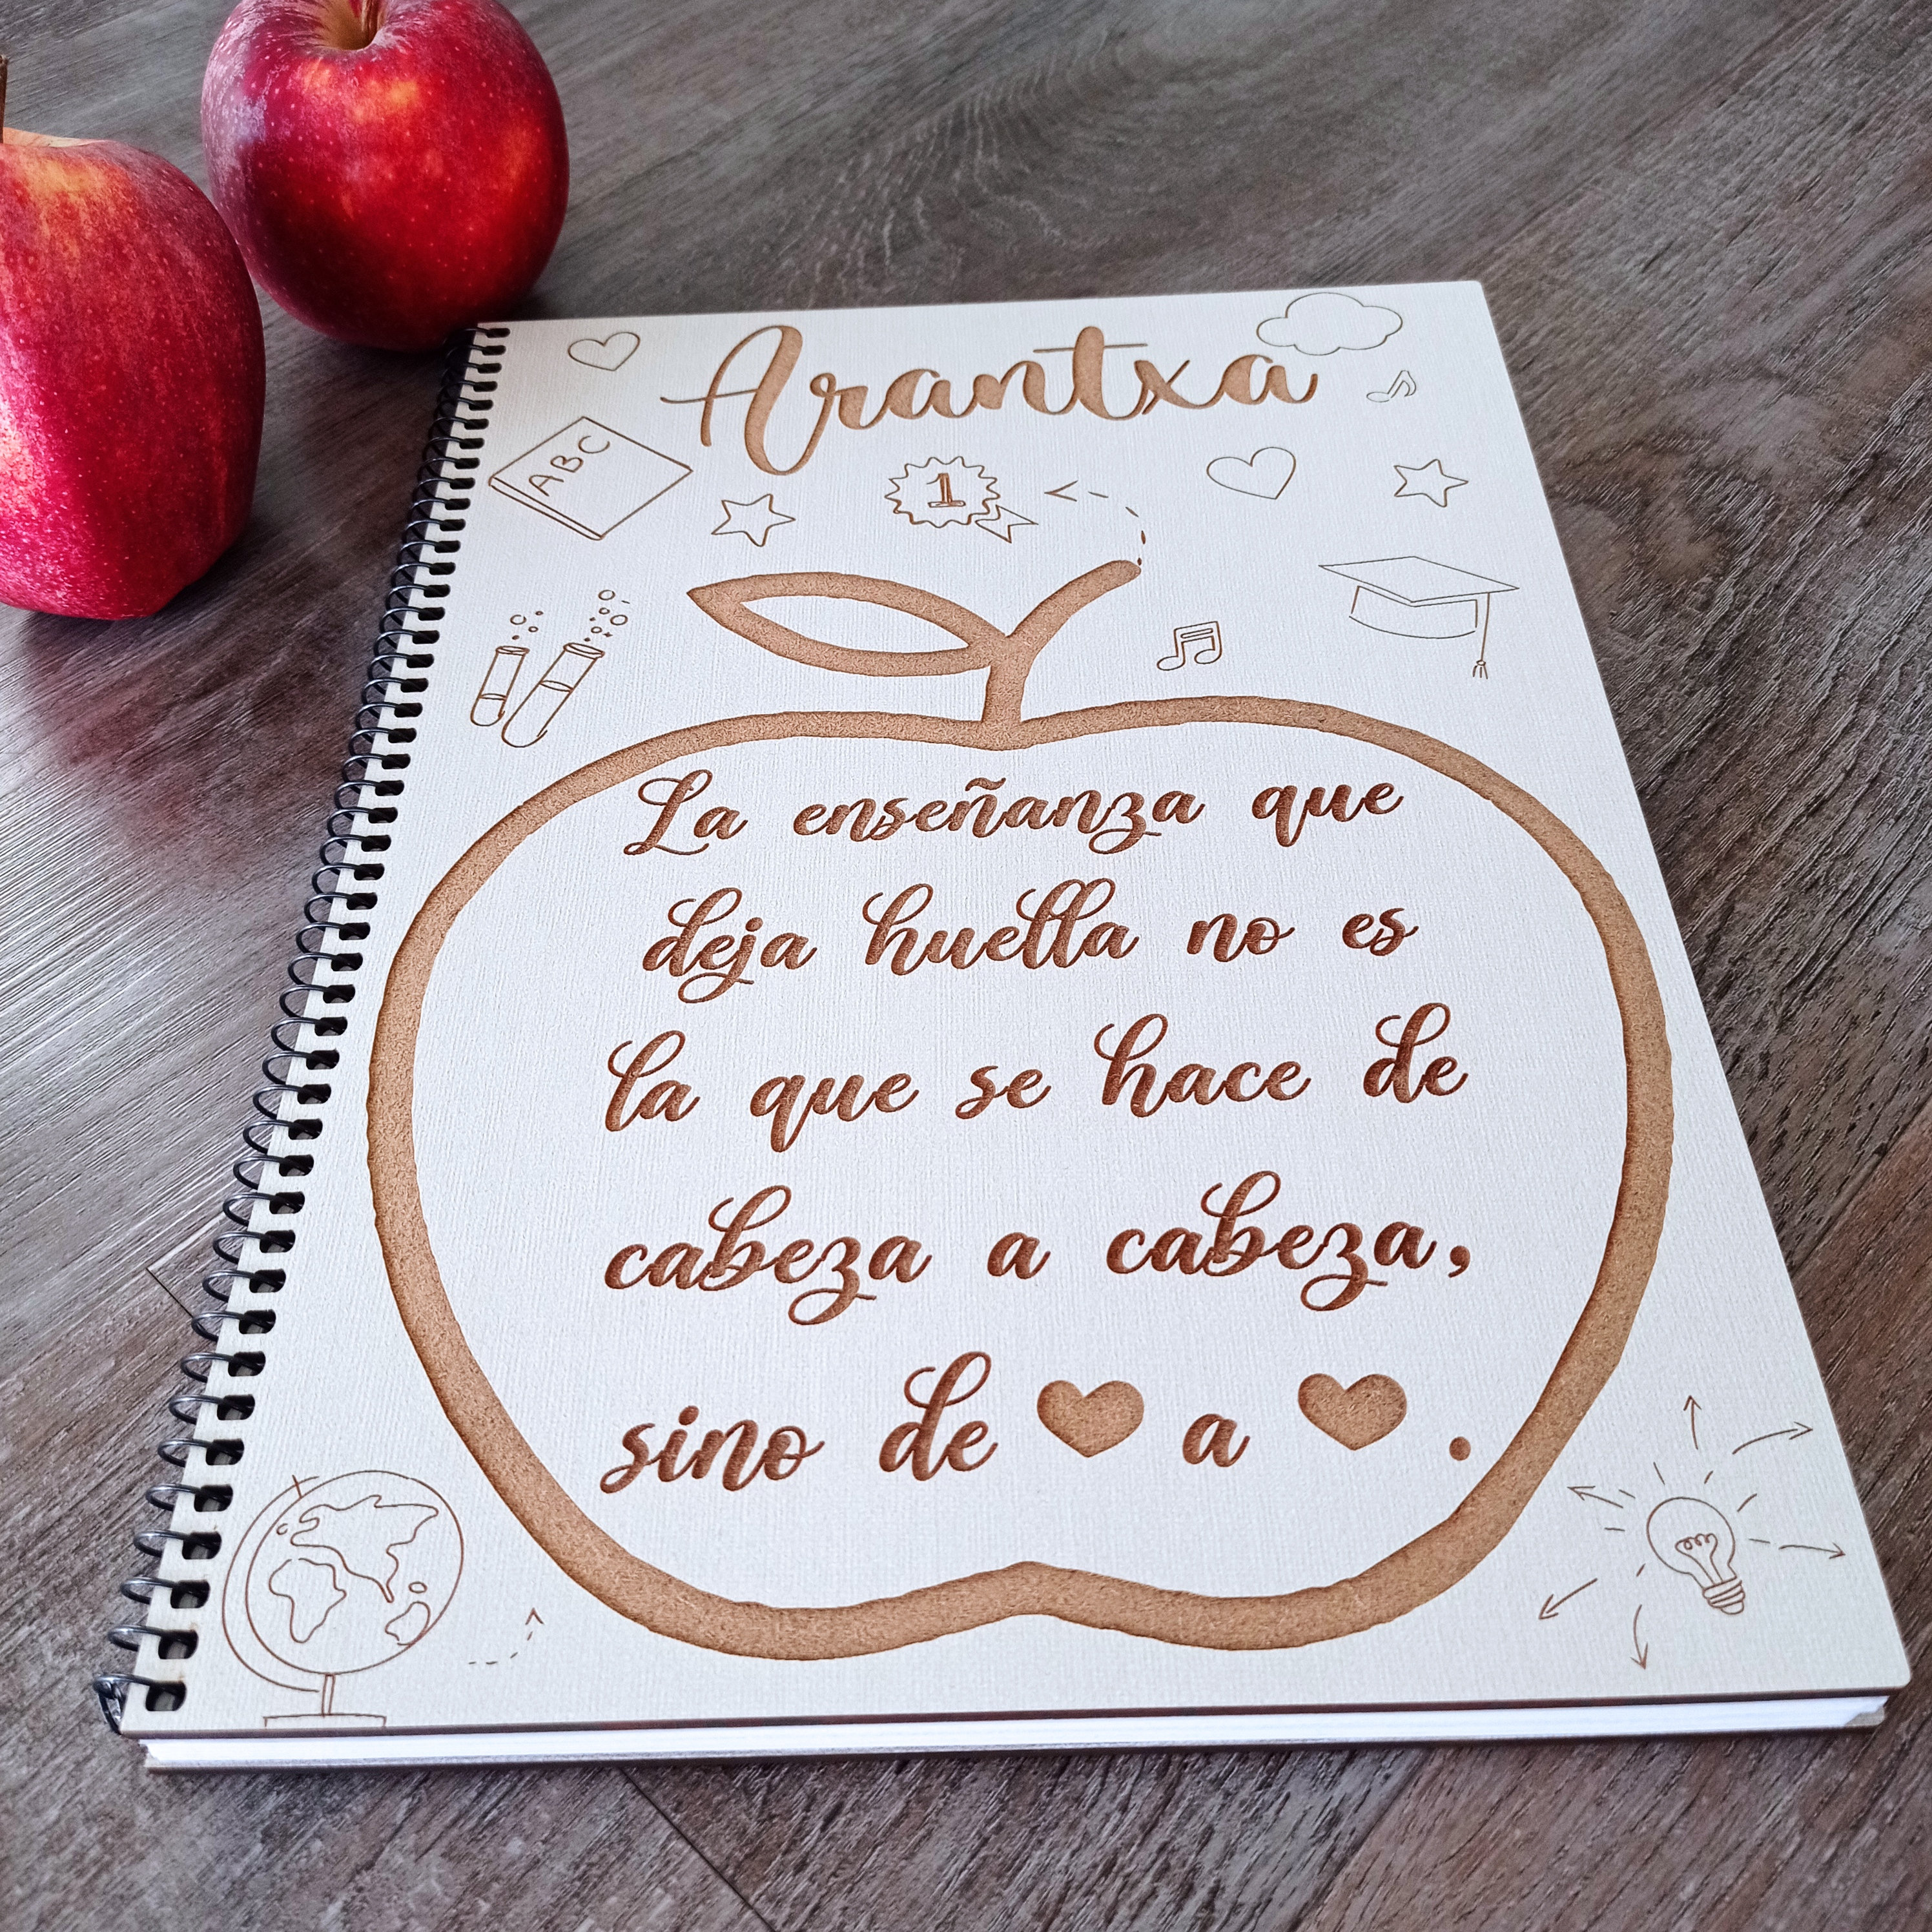 Arantxa
ABC
1
La enseñanza que
deja huella no es
la que se hace de
cabeza a cabeza,
sino de ♥ a ♥.